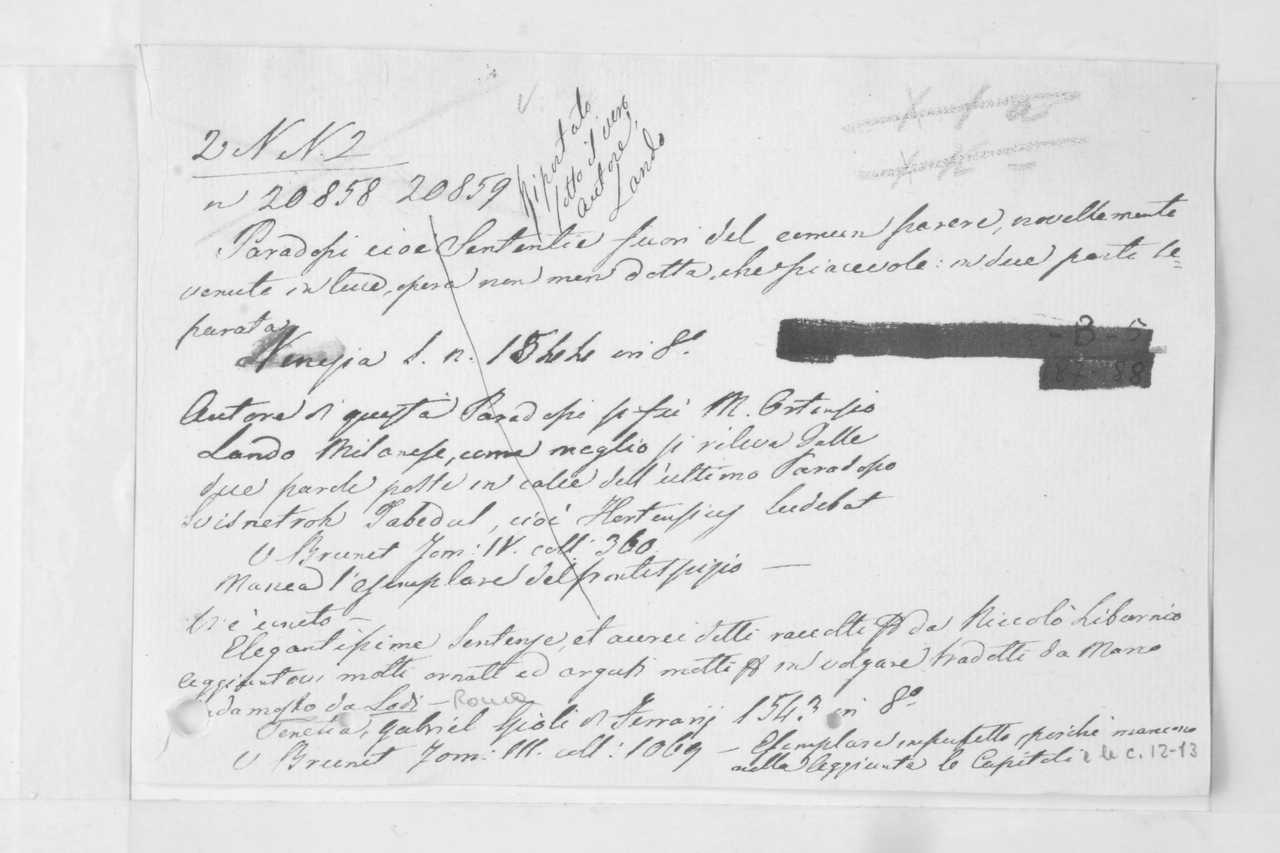 2 N N. 2
n 20858 20859
Riportato
sotto il vero
autore,
Lando
Paradossi cioè Sententie fuori del comun parere, novellamente
venute in luce, opera non men dotta, che piacevole: in due parti se=
parata
Venezia s. n. 1544 in 8°
- B - 5
87 88
Autore di questi Paradossi si fu M. Ortensio
Lando Milanese, come meglio si rileva dalle
due parole poste in calce dell'ultimo Paradosso
Suisnetroh Tabedul, cioè Hortensius ludebat
V Brunet Tom: IV. coll: 360
Manca l'esemplare del frontispizio —
Vi è unito —
Elegantissime Sentenze, et aurei detti raccolti da Niccolò Liburnio
aggiuntovi molti ornati ed arguti motti in volgare tradotti da Marco
Cadamosto da Lodi - Roma
Venetia, Gabriel Gioli di Ferrarij 1543 in 8°
V Brunet Tom: III. coll: 1069 — Esemplare imperfetto, poichè mancano
nella aggiunta le Capitoli e le c. 12-13